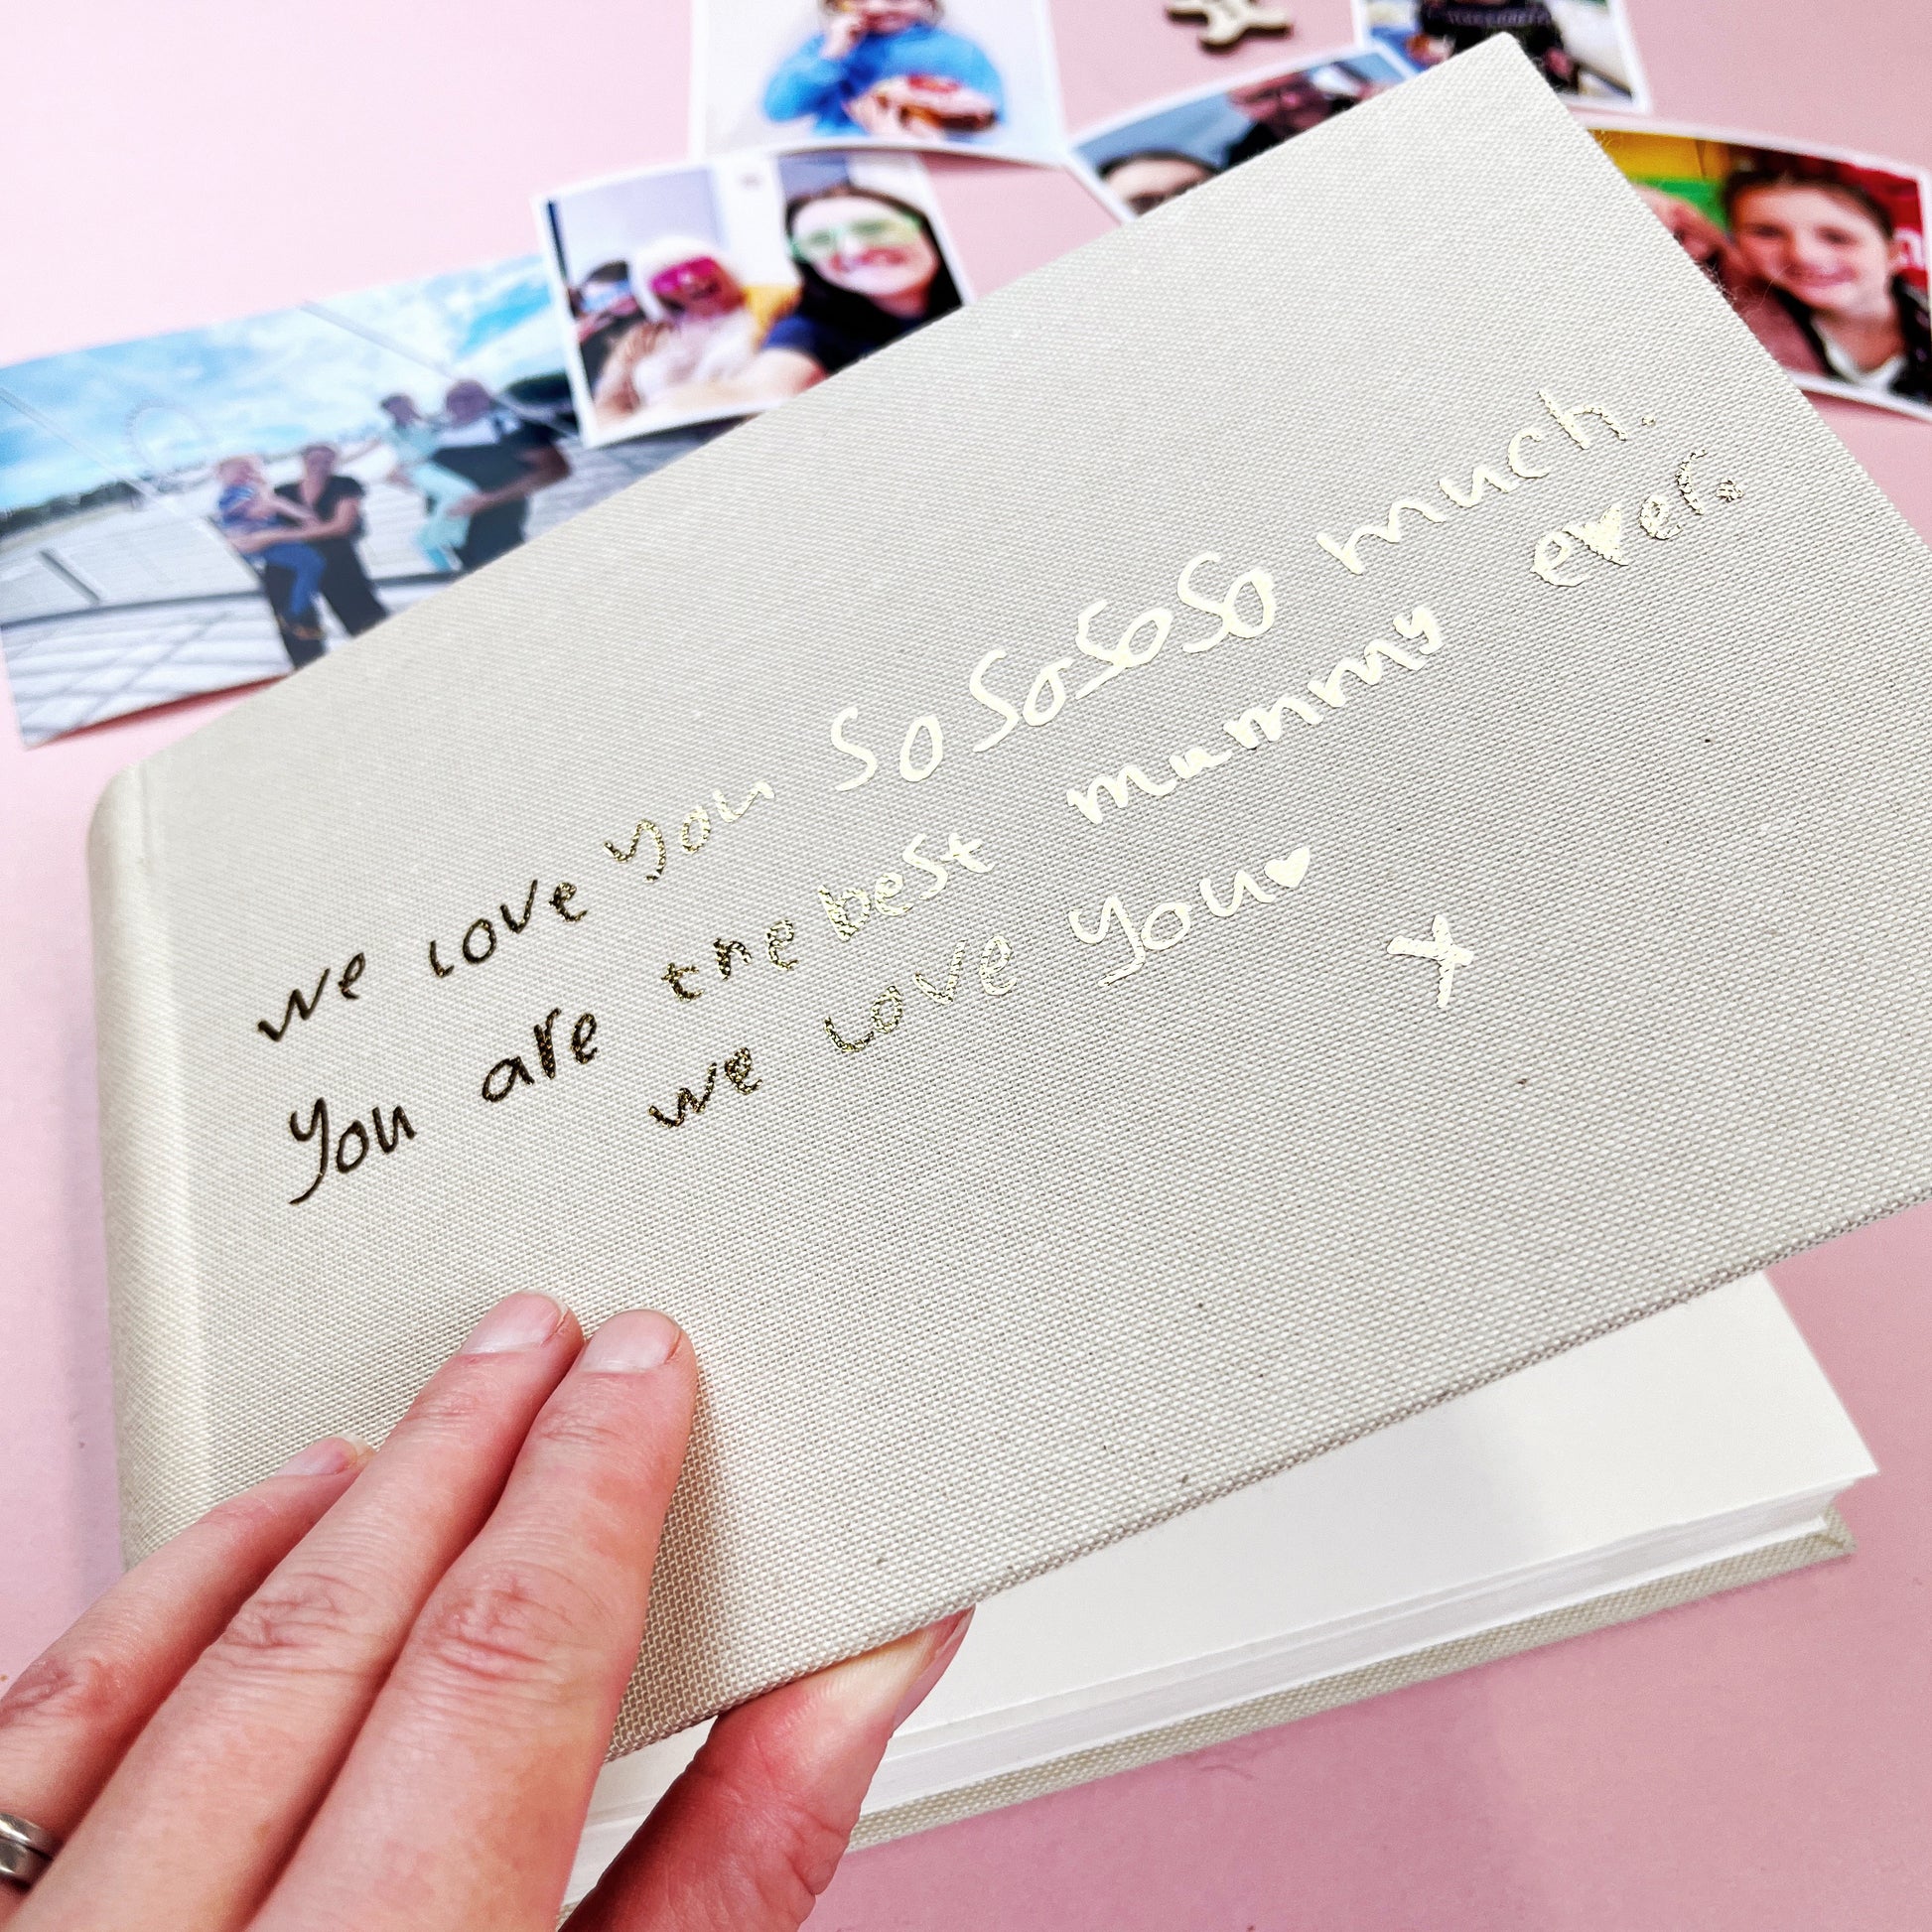 we love you so sososo much.
You are the best mummy ever.
we love you♥
x